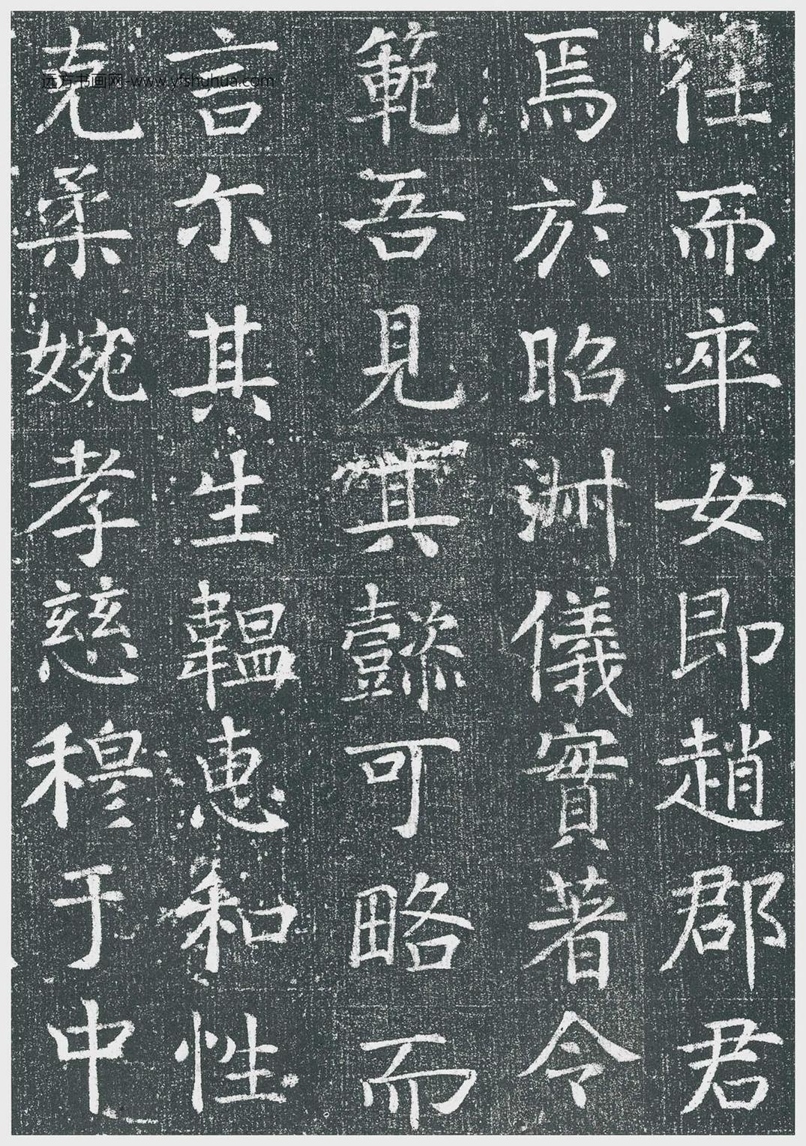 往而卒女即趙郡君
焉於昭淋儀實著令
範吾見其懿可略而
言尔其生韞惠和性
克柔婉孝慈穆于中
远方书画网-www.yfshuhua.com